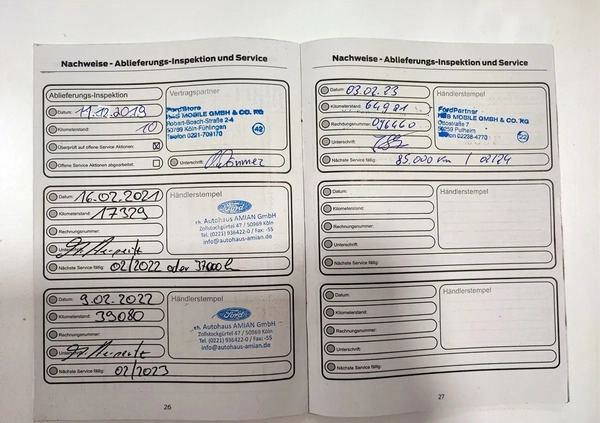 Nachweise - Ablieferungs-Inspektion und Service
Ablieferungs-Inspektion
Datum: 11.12.2019
Kilometerstand: 10
Überprüft auf offene Service Aktionen:
Offene Service Aktionen abgearbeitet:
Vertragspartner
FordStore
R&S MOBILE GMBH & CO. KG
Robert-Bosch-Straße 2-4
50769 Köln-Fühlingen
Telefon 0221-709170
42
Unterschrift:
Datum: 16.02.2021
Kilometerstand: 17329
Rechnungsnummer:
Unterschrift:
Nächste Service fällig: 02/2022 oder 37000
Händlerstempel
Ford
Autohaus AMIAN GmbH
Zollstockgürtel 47 / 50969 Köln
Tel. (0221) 936422-0 / Fax: -55
info@autohaus-amian.de
Datum: 9.02.2022
Kilometerstand: 39080
Rechnungsnummer:
Nächste Service fällig: 02/2023
Händlerstempel
Ford
Autohaus AMIAN GmbH
Zollstockgürtel 47 / 50969 Köln
Tel. (0221) 936422-0 / Fax: -55
info@autohaus-amian.de
26
Nachweise - Ablieferungs-Inspektion und Service
Datum: 03.02.23
Kilometerstand: 64981
Rechnungsnummer:
Unterschrift:
Nächste Service fällig: 85.000 km / 02/24
Händlerstempel
FordPartner
R&S MOBILE GMBH & CO. KG
Ottostraße 7
50259 Pulheim
Telefon 02238-4770
22
Datum:
Kilometerstand:
Rechnungsnummer:
Unterschrift:
Nächste Service fällig:
Händlerstempel
Datum:
Kilometerstand:
Rechnungsnummer:
Unterschrift:
Nächste Service fällig:
Händlerstempel
27